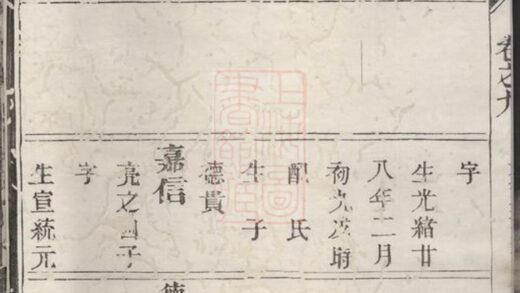 卷之九
字
生光緒廿
八年二月
初九戌時
配氏
生子
德貴
嘉信
亮之四子
字
生宣統元
德